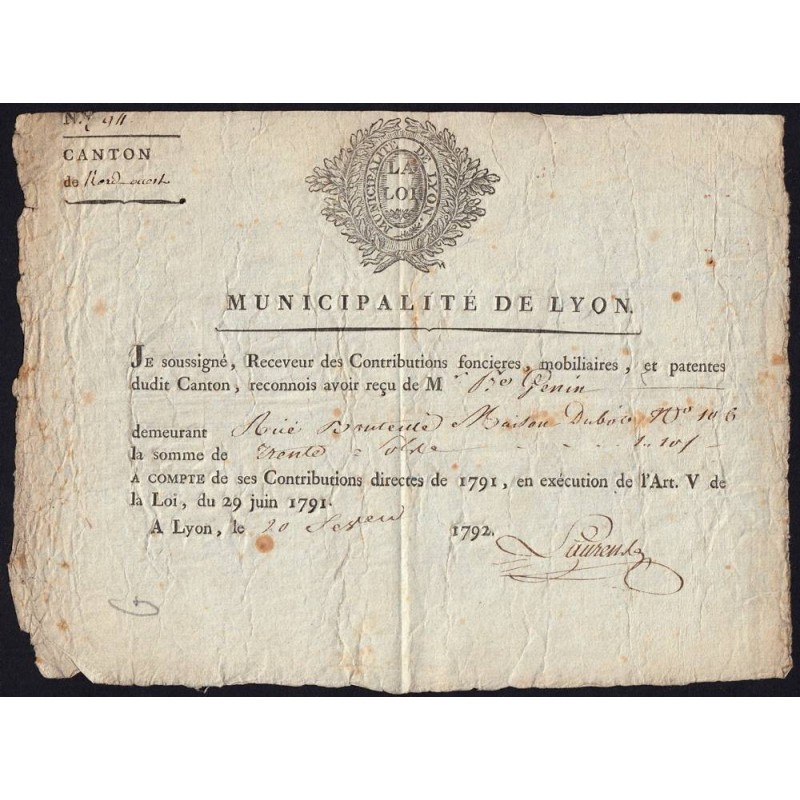 N.º 94
CANTON
de Nord-ouest
MUNICIPALITÉ DE LYON.
LA
LOI
MUNICIPALITÉ DE LYON.
JE soussigné, Receveur des Contributions foncieres, mobiliaires, et patentes
dudit Canton, reconnois avoir reçu de M Genin
demeurant Rüe Maison Dubois Nº 106
la somme de Trente Solds 1.. 10ſ
A COMPTE de ses Contributions directes de 1791, en exécution de l'Art. V de
la Loi, du 29 juin 1791.
A Lyon, le 20 1792.
Laurens